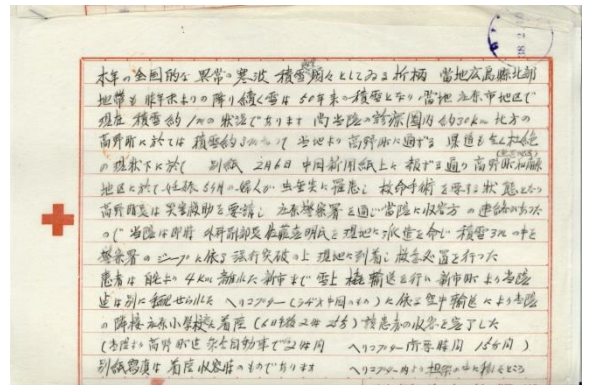 本年の全国的な異常の寒波 積雪頻々としてゐる折柄 当地広島縣北部
地帯も昨年末よりの降り続く雪は50年来の積雪となり 当地庄原市地区で
現在 積雪約1mの状況であります 尚当院の診療圏内約30km北方の
高野町に於ては積雪約3m 当地より高野町に通ずる県道も全く杜絶
の現状下に於て 別紙 2月6日中国新聞紙上に報ずる通り 高野町
地区に於て妊娠5ヶ月の婦人が虫垂炎に罹患し救命手術を要する状態となり
高野町長は災害救助を要請し 庄原警察署を通じ当院に収容方の連絡があった
ので 当院は即時 外科副部長佐藤 氏を現地に派遣を命じ 積雪3mの中を
警察署のジープに依る強行突破の上 現地に到着し救急処置を行った
患者は自宅より4km離れた新市まで雪上橇輸送を行い 新市町より当院
迄は別に手配せられた ヘリコプター(ラヂオ中国のもの)に依る空中輸送により当院
の隣接庄原小学校に着陸(6日午後2時 分)該患者の収容を完了した
(当院より高野町迄 自動車で2時間 ヘリコプター所要時間 15分間)
別紙写真は着陸収容時のものであります ヘリコプター内より担架に移したところ